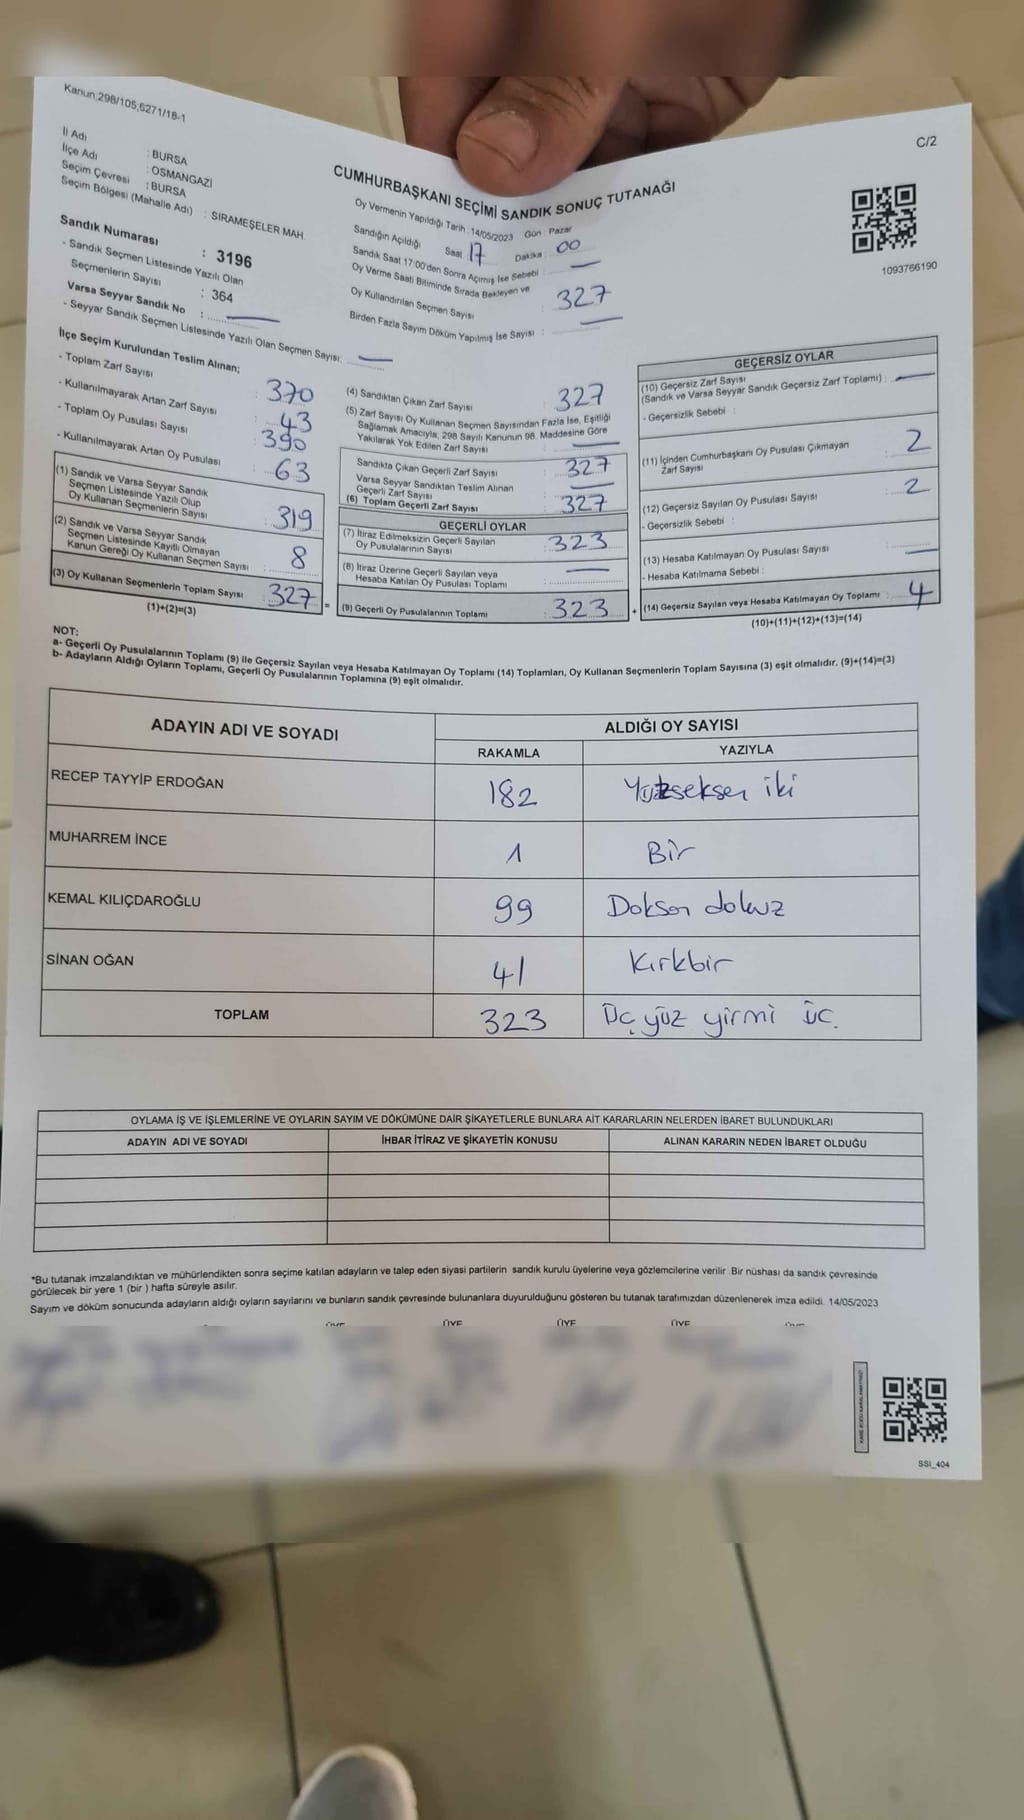 Kanun:298/105,6271/18-1
C/2
İl Adı : BURSA
İlçe Adı : OSMANGAZİ
Seçim Çevresi : BURSA
Seçim Bölgesi (Mahalle Adı) : SIRAMEŞELER MAH.
CUMHURBAŞKANI SEÇİMİ SANDIK SONUÇ TUTANAĞI
Oy Vermenin Yapıldığı Tarih :14/05/2023 Gün : Pazar
Sandığın Açıldığı Saat : 17 Dakika : 00
Sandık Saat 17:00'den Sonra Açımış İse Sebebi : —
Oy Verme Saati Bitiminde Sırada Bekleyen ve
Oy Kullandırılan Seçmen Sayısı : 327
Birden Fazla Sayım Döküm Yapılmış İse Sayısı : —
1093766190
Sandık Numarası : 3196
- Sandık Seçmen Listesinde Yazılı Olan
Seçmenlerin Sayısı : 364
Varsa Seyyar Sandık No : —
- Seyyar Sandık Seçmen Listesinde Yazılı Olan Seçmen Sayısı: —
İlçe Seçim Kurulundan Teslim Alınan;
- Toplam Zarf Sayısı : 370
- Kullanılmayarak Artan Zarf Sayısı : 43
- Toplam Oy Pusulası Sayısı : 390
- Kullanılmayarak Artan Oy Pusulası : 63
(1) Sandık ve Varsa Seyyar Sandık
Seçmen Listesinde Yazılı Olup
Oy Kullanan Seçmenlerin Sayısı : 319
(2) Sandık ve Varsa Seyyar Sandık
Seçmen Listesinde Kayıtlı Olmayan
Kanun Gereği Oy Kullanan Seçmen Sayısı : 8
(3) Oy Kullanan Seçmenlerin Toplam Sayısı : 327 =
(1)+(2)=(3)
(4) Sandıktan Çıkan Zarf Sayısı : 327
(5) Zarf Sayısı Oy Kullanan Seçmen Sayısından Fazla İse, Eşitliği
Sağlamak Amacıyla, 298 Sayılı Kanunun 98. Maddesine Göre
Yakılarak Yok Edilen Zarf Sayısı : —
Sandıkta Çıkan Geçerli Zarf Sayısı : 327
Varsa Seyyar Sandıktan Teslim Alınan
Geçerli Zarf Sayısı : —
(6) Toplam Geçerli Zarf Sayısı : 327
GEÇERLİ OYLAR
(7) İtiraz Edilmeksizin Geçerli Sayılan
Oy Pusulalarının Sayısı : 323
(8) İtiraz Üzerine Geçerli Sayılan veya
Hesaba Katılan Oy Pusulası Toplamı : —
(9) Geçerli Oy Pusulalarının Toplamı : 323 +
GEÇERSİZ OYLAR
(10) Geçersiz Zarf Sayısı
(Sandık ve Varsa Seyyar Sandık Geçersiz Zarf Toplamı) : —
- Geçersizlik Sebebi :
(11) İçinden Cumhurbaşkanı Oy Pusulası Çıkmayan
Zarf Sayısı : 2
(12) Geçersiz Sayılan Oy Pusulası Sayısı : 2
- Geçersizlik Sebebi :
(13) Hesaba Katılmayan Oy Pusulası Sayısı : —
- Hesaba Katılmama Sebebi :
(14) Geçersiz Sayılan veya Hesaba Katılmayan Oy Toplamı : 4
(10)+(11)+(12)+(13)=(14)
NOT:
a- Geçerli Oy Pusulalarının Toplamı (9) ile Geçersiz Sayılan veya Hesaba Katılmayan Oy Toplamı (14) Toplamları, Oy Kullanan Seçmenlerin Toplam Sayısına (3) eşit olmalıdır. (9)+(14)=(3)
b- Adayların Aldığı Oyların Toplamı, Geçerli Oy Pusulalarının Toplamına (9) eşit olmalıdır.
ADAYIN ADI VE SOYADI
ALDIĞI OY SAYISI
RAKAMLA YAZIYLA
RECEP TAYYİP ERDOĞAN 182 Yüzseksen iki
MUHARREM İNCE 1 Bir
KEMAL KILIÇDAROĞLU 99 Doksan dokuz
SİNAN OĞAN 41 Kırkbir
TOPLAM 323 Üç yüz yirmi üç.
OYLAMA İŞ VE İŞLEMLERİNE VE OYLARIN SAYIM VE DÖKÜMÜNE DAİR ŞİKAYETLERLE BUNLARA AİT KARARLARIN NELERDEN İBARET BULUNDUKLARI
ADAYIN ADI VE SOYADI İHBAR İTİRAZ VE ŞİKAYETİN KONUSU ALINAN KARARIN NEDEN İBARET OLDUĞU
*Bu tutanak imzalandıktan ve mühürlendikten sonra seçime katılan adayların ve talep eden siyasi partilerin sandık kurulu üyelerine veya gözlemcilerine verilir .Bir nüshası da sandık çevresinde
görülecek bir yere 1 (bir ) hafta süreyle asılır.
Sayım ve döküm sonucunda adayların aldığı oyların sayılarını ve bunların sandık çevresinde bulunanlara duyurulduğunu gösteren bu tutanak tarafımızdan düzenlenerek imza edildi. 14/05/2023
ÜYE ÜYE ÜYE ÜYE
SSİ_404